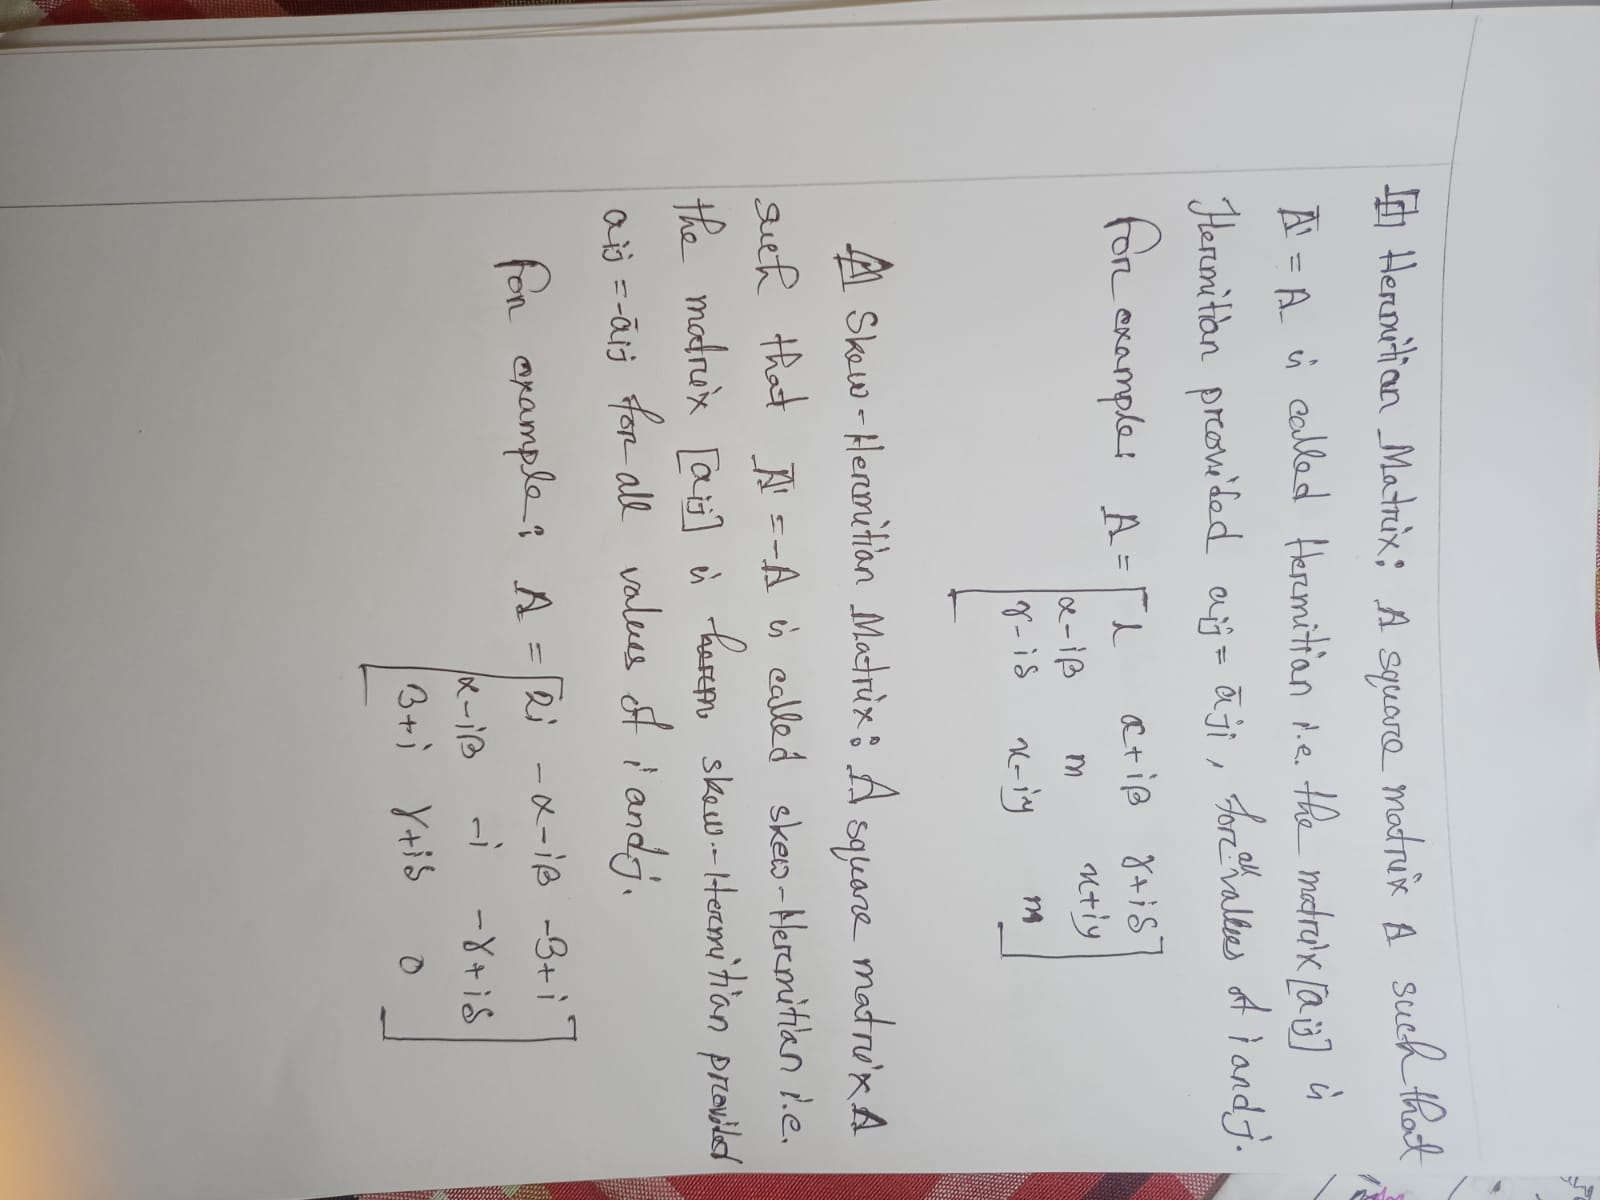 Hermitian Matrix: A square matrix A such that
Ā' = A is called Hermitian i.e. the matrix [aij] is
Hermitian provided aij = āji, for all values of i and j.
for example: A = [ l α+iβ γ+iδ
α-iβ m x+iy
γ-iδ x-iy m ]
Skew-Hermitian Matrix: A square matrix A
such that Ā' = -A is called skew-Hermitian i.e.
the matrix [aij] is skew-Hermitian provided
aij = -āij for all values of i and j.
for example: A = [ 2i -α-iβ -3+i
α-iβ -i -γ+iδ
3+i γ+iδ 0 ]